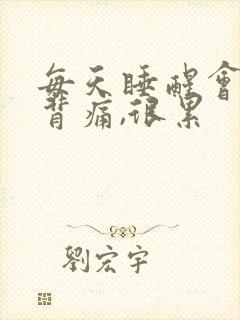 每天睡醒會
背痛,很累
劉宏宇